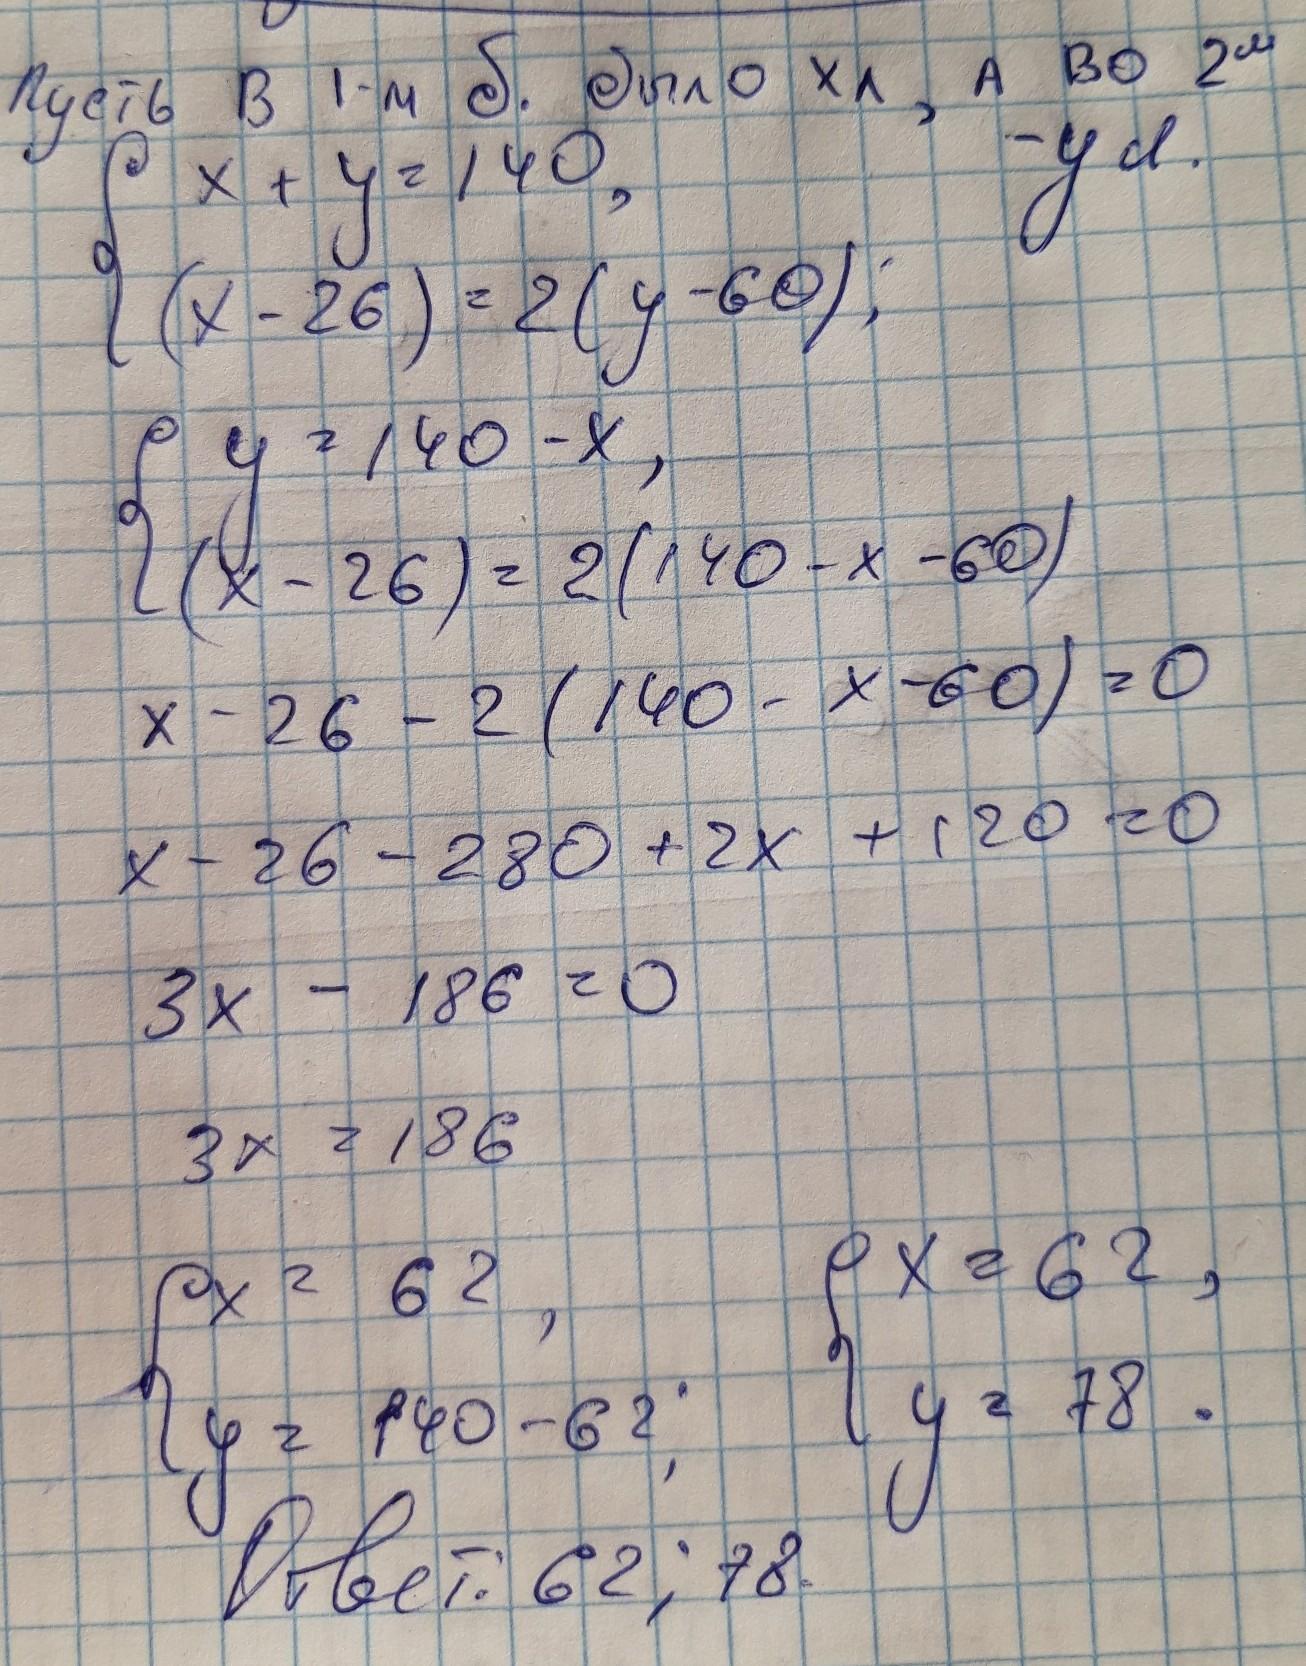 Пусть в 1-м б. было x л, а во 2м
- y л.
x + y = 140,
(x - 26) = 2(y - 60);
y = 140 - x,
(x - 26) = 2(140 - x - 60)
x - 26 - 2(140 - x - 60) = 0
x - 26 - 280 + 2x + 120 = 0
3x - 186 = 0
3x = 186
x = 62, x = 62,
y = 140 - 62; y = 78.
Ответ: 62; 78.